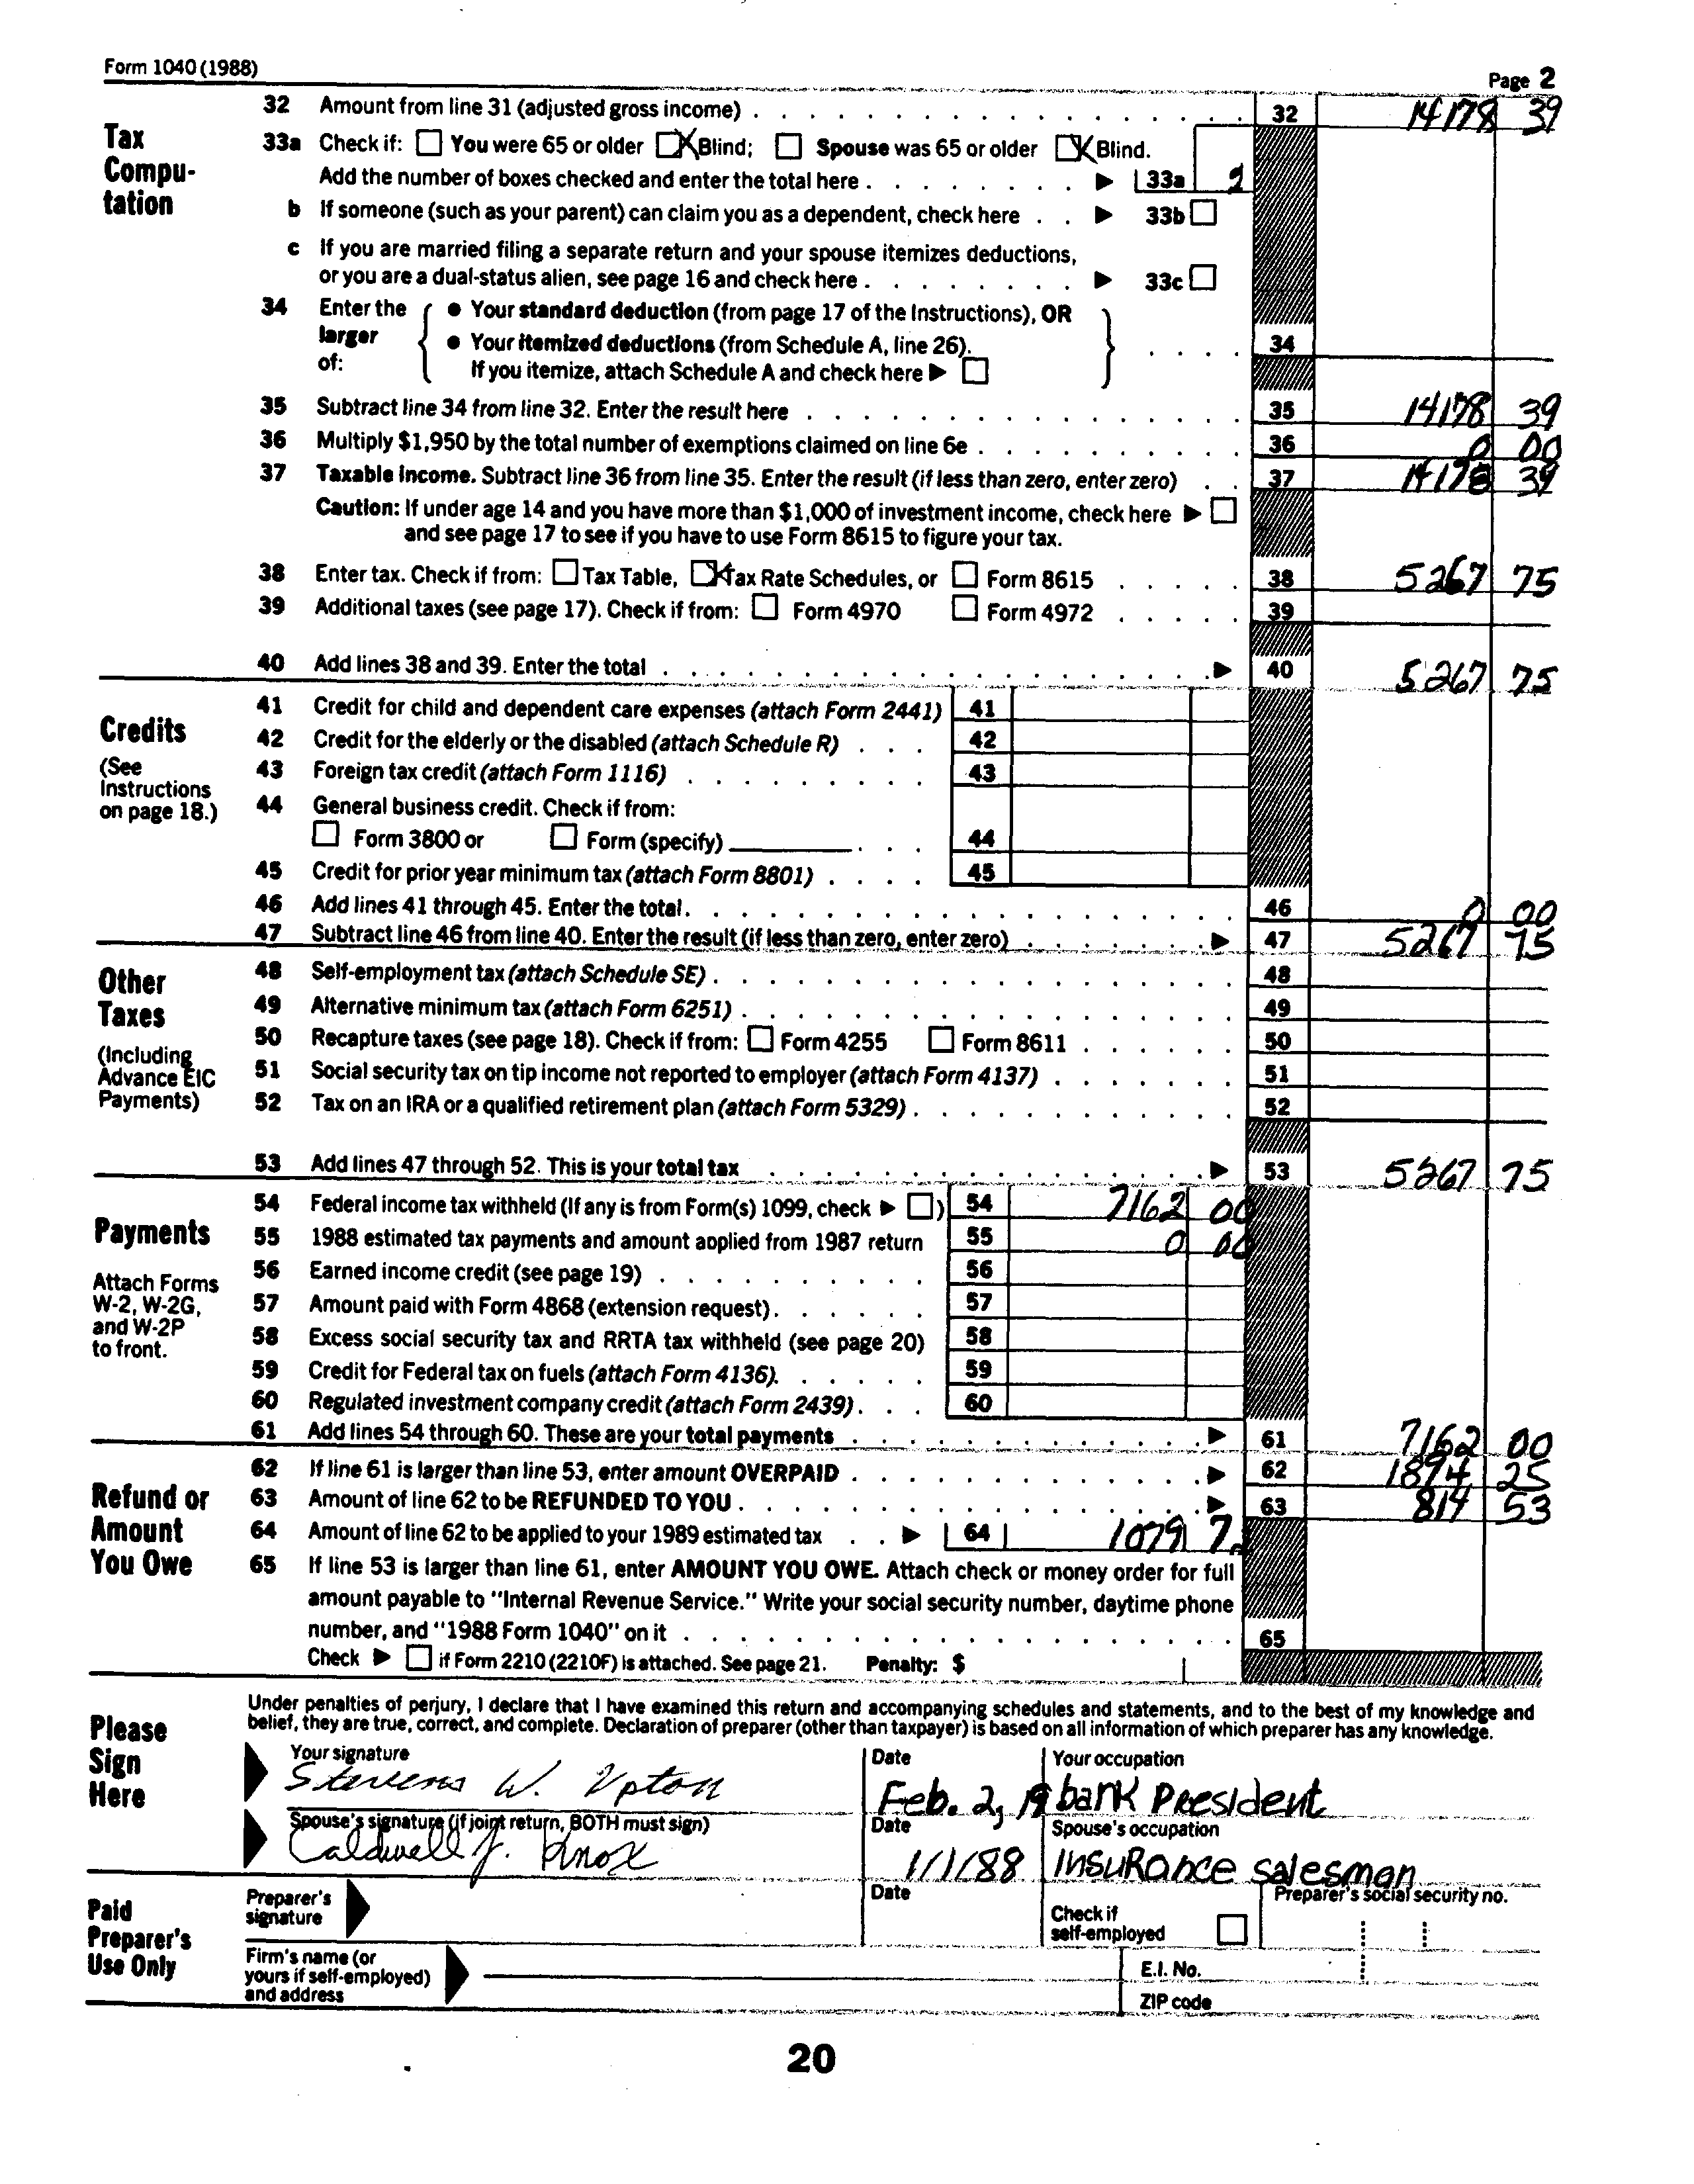 Form 1040 (1988)
Page 2
Tax Compu- tation
32 Amount from line 31 (adjusted gross income) . . . 32 14178 39
33a Check if: ☐ You were 65 or older ☒ Blind; ☐ Spouse was 65 or older ☒ Blind.
Add the number of boxes checked and enter the total here . . . ▶ 33a 2
b If someone (such as your parent) can claim you as a dependent, check here . . ▶ 33b ☐
c If you are married filing a separate return and your spouse itemizes deductions,
or you are a dual-status alien, see page 16 and check here . . . ▶ 33c ☐
34 Enter the larger of: { ● Your standard deduction (from page 17 of the Instructions), OR
● Your itemized deductions (from Schedule A, line 26). } . . . . 34
If you itemize, attach Schedule A and check here ▶ ☐
35 Subtract line 34 from line 32. Enter the result here . . . 35 14178 39
36 Multiply $1,950 by the total number of exemptions claimed on line 6e . . . 36 0 00
37 Taxable income. Subtract line 36 from line 35. Enter the result (if less than zero, enter zero) . . 37 14178 39
Caution: If under age 14 and you have more than $1,000 of investment income, check here ▶ ☐
and see page 17 to see if you have to use Form 8615 to figure your tax.
38 Enter tax. Check if from: ☐ Tax Table, ☒ Tax Rate Schedules, or ☐ Form 8615 . . . 38 5267 75
39 Additional taxes (see page 17). Check if from: ☐ Form 4970 ☐ Form 4972 . . . 39
40 Add lines 38 and 39. Enter the total . . . ▶ 40 5267 75
Credits
(See Instructions on page 18.)
41 Credit for child and dependent care expenses (attach Form 2441) 41
42 Credit for the elderly or the disabled (attach Schedule R) . . . 42
43 Foreign tax credit (attach Form 1116) . . . 43
44 General business credit. Check if from:
☐ Form 3800 or ☐ Form (specify) . . . 44
45 Credit for prior year minimum tax (attach Form 8801) . . . . 45
46 Add lines 41 through 45. Enter the total . . . 46 0 00
47 Subtract line 46 from line 40. Enter the result (if less than zero, enter zero) . . . ▶ 47 5267 75
Other Taxes
(Including Advance EIC Payments)
48 Self-employment tax (attach Schedule SE) . . . 48
49 Alternative minimum tax (attach Form 6251) . . . 49
50 Recapture taxes (see page 18). Check if from: ☐ Form 4255 ☐ Form 8611 . . . 50
51 Social security tax on tip income not reported to employer (attach Form 4137) . . . 51
52 Tax on an IRA or a qualified retirement plan (attach Form 5329) . . . 52
53 Add lines 47 through 52. This is your total tax . . . ▶ 53 5267 75
Payments
Attach Forms W-2, W-2G, and W-2P to front.
54 Federal income tax withheld (If any is from Form(s) 1099, check ▶ ☐) 54 7162 00
55 1988 estimated tax payments and amount applied from 1987 return 55 0 00
56 Earned income credit (see page 19) . . . 56
57 Amount paid with Form 4868 (extension request) . . . 57
58 Excess social security tax and RRTA tax withheld (see page 20) 58
59 Credit for Federal tax on fuels (attach Form 4136) . . . 59
60 Regulated investment company credit (attach Form 2439) . . . 60
61 Add lines 54 through 60. These are your total payments . . . ▶ 61 7162 00
Refund or Amount You Owe
62 If line 61 is larger than line 53, enter amount OVERPAID . . . ▶ 62 1894 25
63 Amount of line 62 to be REFUNDED TO YOU . . . ▶ 63 814 53
64 Amount of line 62 to be applied to your 1989 estimated tax . . ▶ 64 1079 7
65 If line 53 is larger than line 61, enter AMOUNT YOU OWE. Attach check or money order for full
amount payable to "Internal Revenue Service." Write your social security number, daytime phone
number, and "1988 Form 1040" on it . . . 65
Check ▶ ☐ if Form 2210 (2210F) is attached. See page 21. Penalty: $
Please Sign Here
Under penalties of perjury, I declare that I have examined this return and accompanying schedules and statements, and to the best of my knowledge and
belief, they are true, correct, and complete. Declaration of preparer (other than taxpayer) is based on all information of which preparer has any knowledge.
Your signature Date Your occupation
Stevens W. Upton Feb. 2, 19 bank President
Spouse's signature (if joint return, BOTH must sign) Date Spouse's occupation
Caldwell J. Knox 1/1/88 Insurance salesman
Paid Preparer's Use Only
Preparer's signature Date Check if self-employed ☐ Preparer's social security no.
Firm's name (or yours if self-employed) and address E.I. No.
ZIP code
20